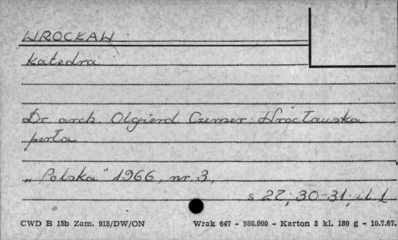 WROCŁAW
Katedra
Dr arch. Olgierd Czerner: Wrocławska
perła
„Polska" 1966, nr 3,
s 27; 30-31; il. 1
CWD B 15b Zam. 915/DW/ON Wrak 647 - 980.000 - Karton 5 kl. 180 g - 10.7.67.